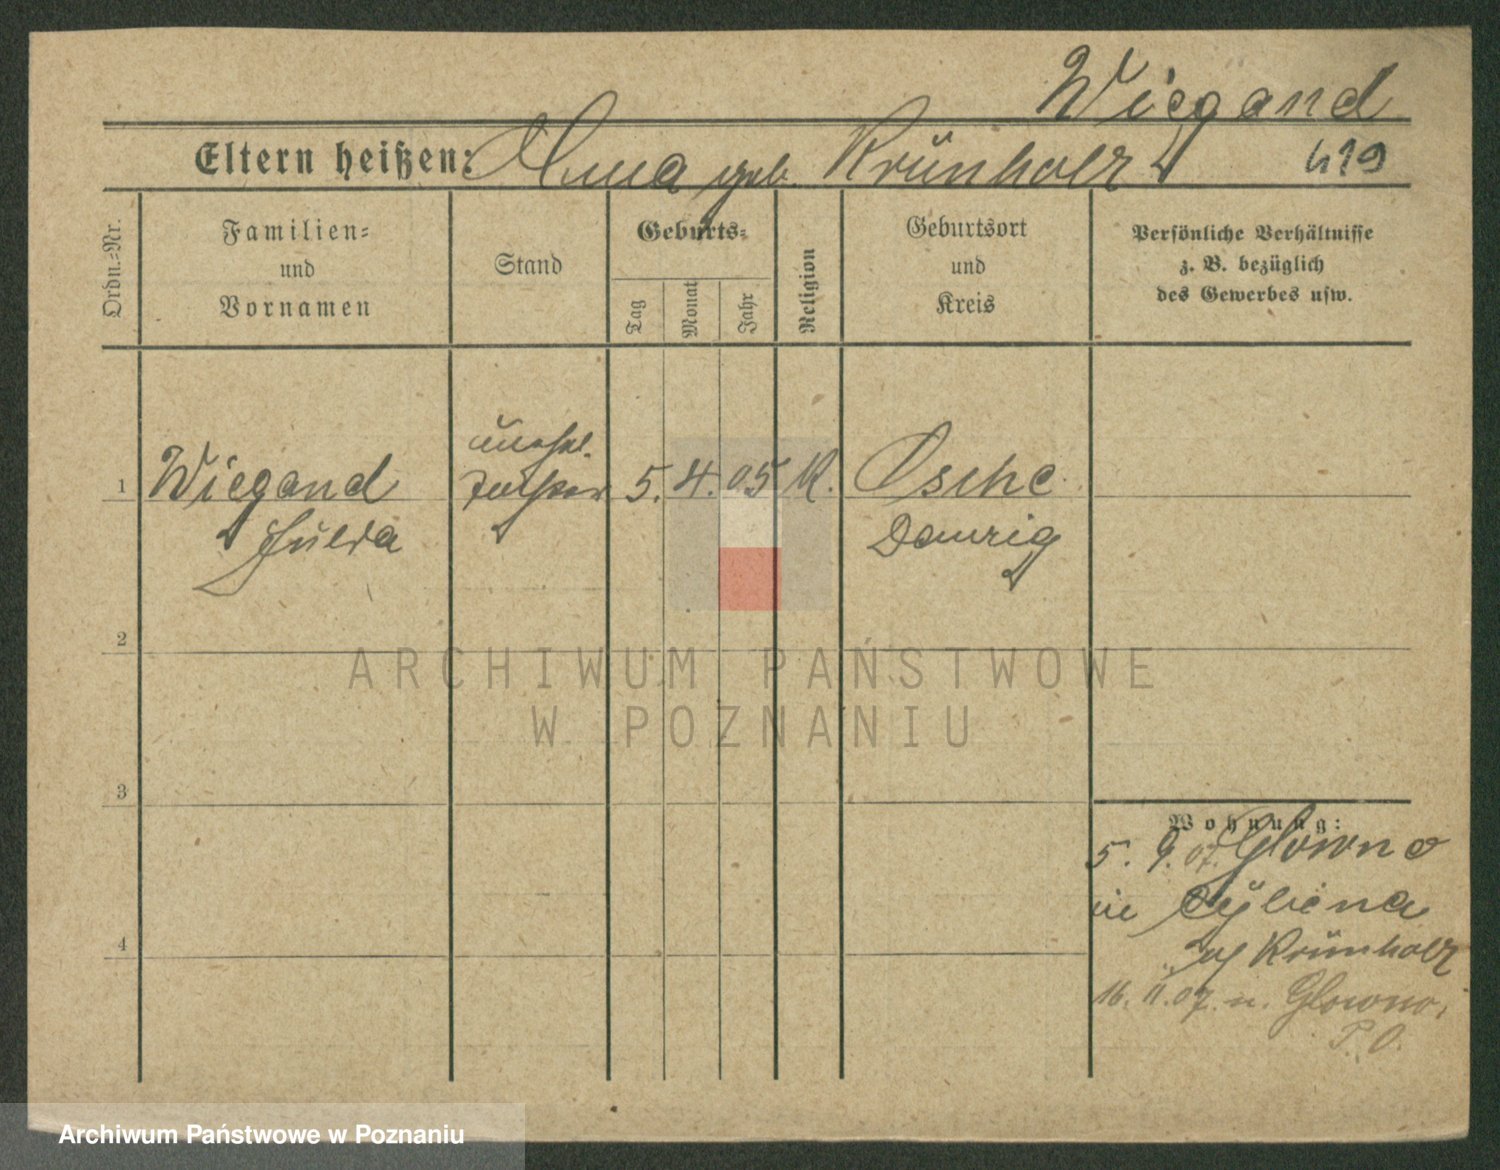 Wiegand
Eltern heißen: Anna geb. Krünholz 419
Ordn.-Nr.
Familien-
und
Vornamen
Stand
Geburts-
Tag
Monat
Jahr
Religion
Geburtsort
und
Kreis
Persönliche Verhältnisse
z. B. bezüglich
des Gewerbes usw.
1 Wiegand unehel. 5. 4. 05 K. Osche
Hulda Tochter Danzig
2
3
4
Wohnung:
5. 9. 07. Glowno
Krünholz
16. 11. 07. n. Glowno,
P. O.
ARCHIWUM PAŃSTWOWE
W POZNANIU
Archiwum Państwowe w Poznaniu